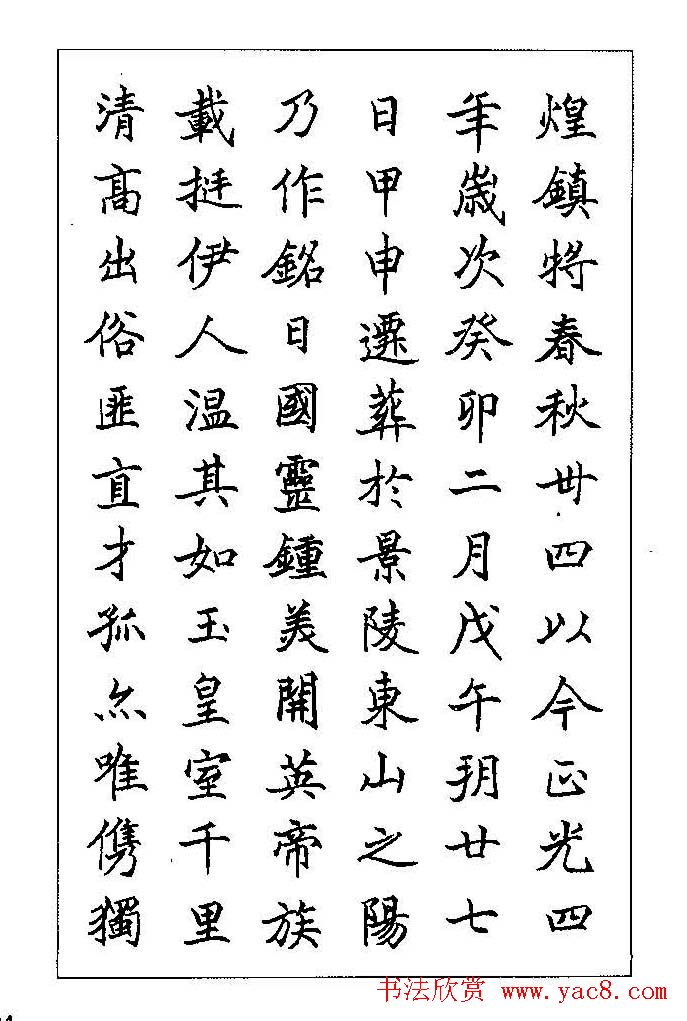 煌鎮将春秋卅四以今正光四
年歲次癸卯二月戊午朔廿七
日甲申遷葬於景陵東山之陽
乃作銘曰國靈鍾美開英帝族
載挺伊人温其如玉皇室千里
清髙出俗匪直才孤亦唯儁獨
书法欣赏 www.yac8.com